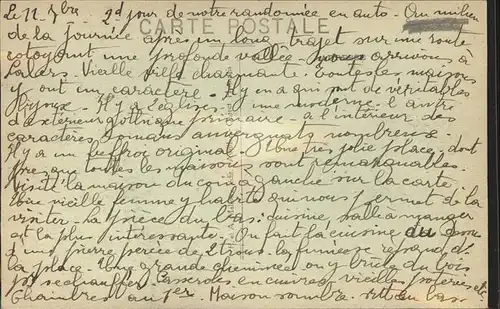 Le 11 7bre 2d jour de notre randonnée en auto. Au milieu
CARTE POSTALE
de la journée après un long trajet sur une route
cotoyant une profonde vallée arrivons à
Vieille ville charmante. Toutes les maisons
y ont un caractère. Il y en a qui ont de véritables
Il y a 2 églises, 1 une moderne l'autre
à extérieur gothique primaire à l'intérieur des
caractères romans auvergnats nombreux.
Il y a un beffroi original. Une très jolie place, dont
presque toutes les maisons sont remarquables.
Visité la maison du coin à gauche sur la carte
Une vieille femme y habite qui nous permet de la
visiter. La pièce du bas: cuisine salle à manger
est la plus intéressante. On fait la cuisine
une pierre percée de 2 trous. la fumée se répand
la place. Une grande cheminée où y brûle du bois
pr se chauffer. Casseroles en cuivre, vieilles poteries etc
Chambres au 1er. Maison sombre. bas